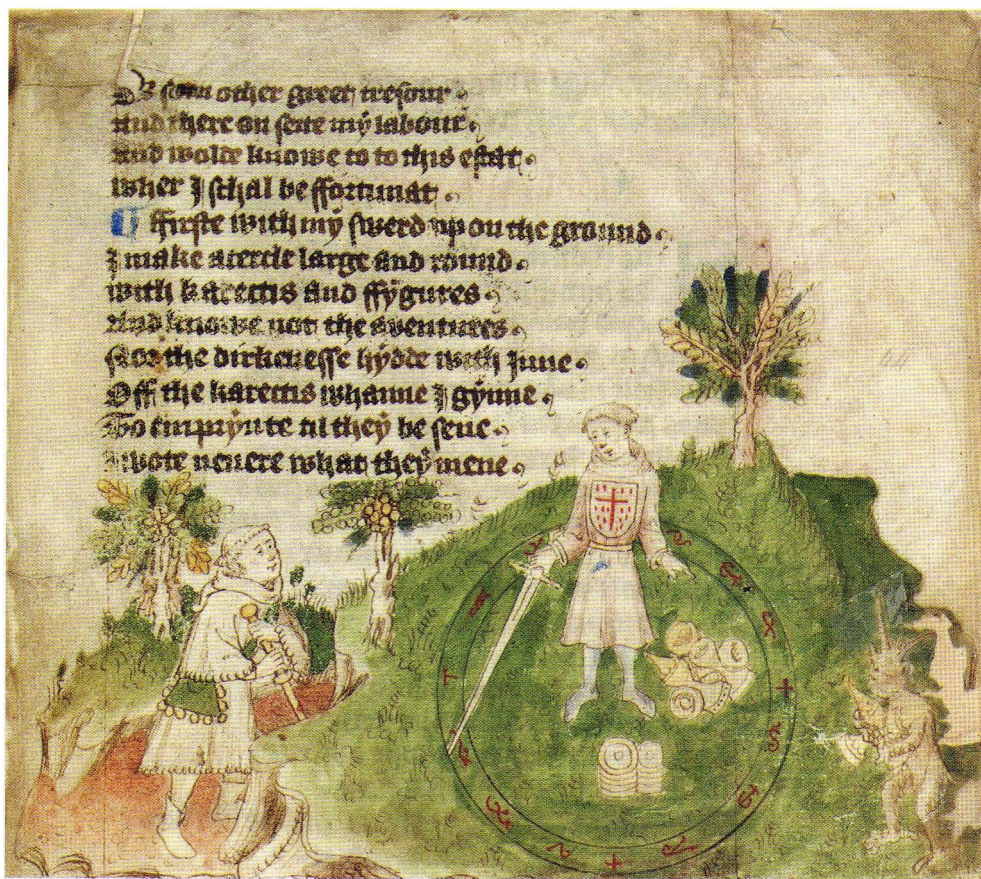 Or som other greet tresour
And there on sette my labour
And wolde knowe to to this estat
wher I schal be ffortunat
¶ ffirste with my swerd up on the ground
I make a cercle large and round
with karectis and ffygures
And knowe not the aventures
ffor the dirkenesse hydde with Inne
Off the karectis whanne I gynne
To emprynte til they be sene
I wote nevere what they mene